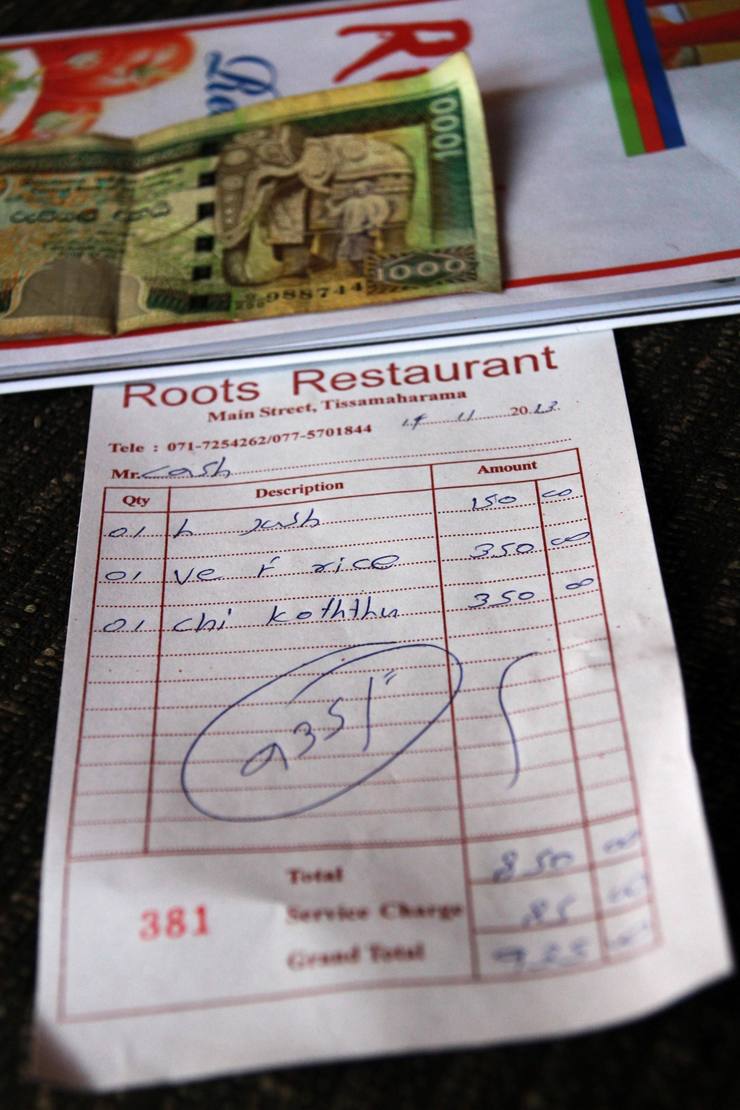 1000
1000
988744
Roots Restaurant
Main Street, Tissamaharama
Tele : 071-7254262/077-5701844
11 2013
Mr. cash
Qty Description Amount
01 150 00
01 ve F rice 350 00
01 chi koththu 350 00
935/=
Total 850 00
Service Charge 85 00
381
Grand Total 00